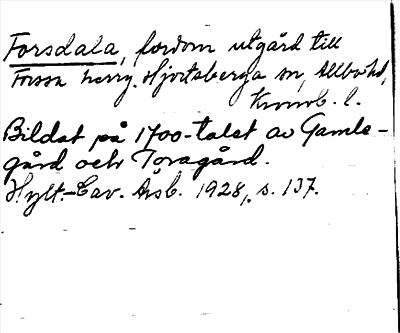 Forsdala, fordom utgård till
Forssa herrg. Hjortsberga sn, Allbo hd,
Kronob. l.
Bildat på 1700-talet av Gamle-
gård och Toragård.
Hylt.-Cav. Årsb. 1928, s. 137.